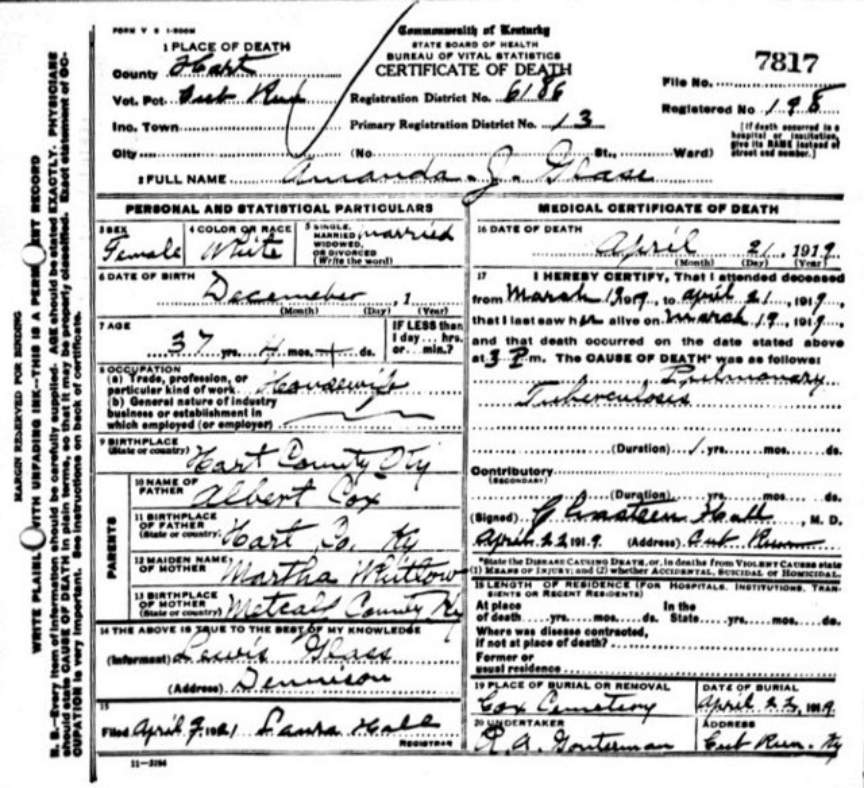 FORM V S 1-500M
Commonwealth of Kentucky
STATE BOARD OF HEALTH
BUREAU OF VITAL STATISTICS
CERTIFICATE OF DEATH
7817
1 PLACE OF DEATH
County Hart
Vot. Pct. Cub Run
Inc. Town
City (No St., Ward)
Registration District No. 6186
Primary Registration District No. 13
File No.
Registered No 198
[If death occurred in a hospital or institution, give its NAME instead of street and number.]
2 FULL NAME Amanda J. Glass
PERSONAL AND STATISTICAL PARTICULARS
3 SEX
Female
4 COLOR OR RACE
White
5 SINGLE, MARRIED, WIDOWED, OR DIVORCED (Write the word)
married
6 DATE OF BIRTH
December, 1
(Month) (Day) (Year)
7 AGE
37 yrs. 4 mos. ds.
IF LESS than 1 day... hrs. or... min.?
8 OCCUPATION
(a) Trade, profession, or particular kind of work. Housewife
(b) General nature of industry business or establishment in which employed (or employer)
9 BIRTHPLACE
(State or country) Hart County
PARENTS
10 NAME OF FATHER Albert Cox
11 BIRTHPLACE OF FATHER (State or country) Hart Co. Ky
12 MAIDEN NAME OF MOTHER Martha Whitlow
13 BIRTHPLACE OF MOTHER (State or country) Metcalf County Ky
14 THE ABOVE IS TRUE TO THE BEST OF MY KNOWLEDGE
(Informant) Lewis Glass
(Address) Dennison
15
Filed April 9, 1921 Laura Hall
REGISTRAR
11-3184
MEDICAL CERTIFICATE OF DEATH
16 DATE OF DEATH
April 21, 1919
(Month) (Day) (Year)
17 I HEREBY CERTIFY, That I attended deceased
from March 1919, to April 21, 1919,
that I last saw her alive on March 19, 1919,
and that death occurred on the date stated above
at 3 P.m. The CAUSE OF DEATH* was as follows:
Pulmonary
Tuberculosis
(Duration) 1 yrs. mos. ds.
Contributory
(SECONDARY)
(Duration) yrs. mos. ds.
(Signed) Hall, M. D.
April 22 1919 (Address) Cub Run
*State the DISEASE CAUSING DEATH, or, in deaths from VIOLENT CAUSES state
(1) MEANS OF INJURY; and (2) whether ACCIDENTAL, SUICIDAL or HOMICIDAL.
18 LENGTH OF RESIDENCE (FOR HOSPITALS, INSTITUTIONS, TRANSIENTS OR RECENT RESIDENTS)
At place of death yrs. mos. ds. In the State yrs. mos. ds.
Where was disease contracted, if not at place of death?
Former or usual residence
19 PLACE OF BURIAL OR REMOVAL
Cox Cemetery
DATE OF BURIAL
April 22, 1919
20 UNDERTAKER
R. A. Gonterman
ADDRESS
Cub Run Ky
MARGIN RESERVED FOR BINDING
WRITE PLAINLY WITH UNFADING INK—THIS IS A PERMANENT RECORD
N. B.—Every item of information should be carefully supplied. AGE should be stated EXACTLY. PHYSICIANS
should state CAUSE OF DEATH in plain terms, so that it may be properly classified. Exact statement of OC-
CUPATION is very important. See instructions on back of certificate.